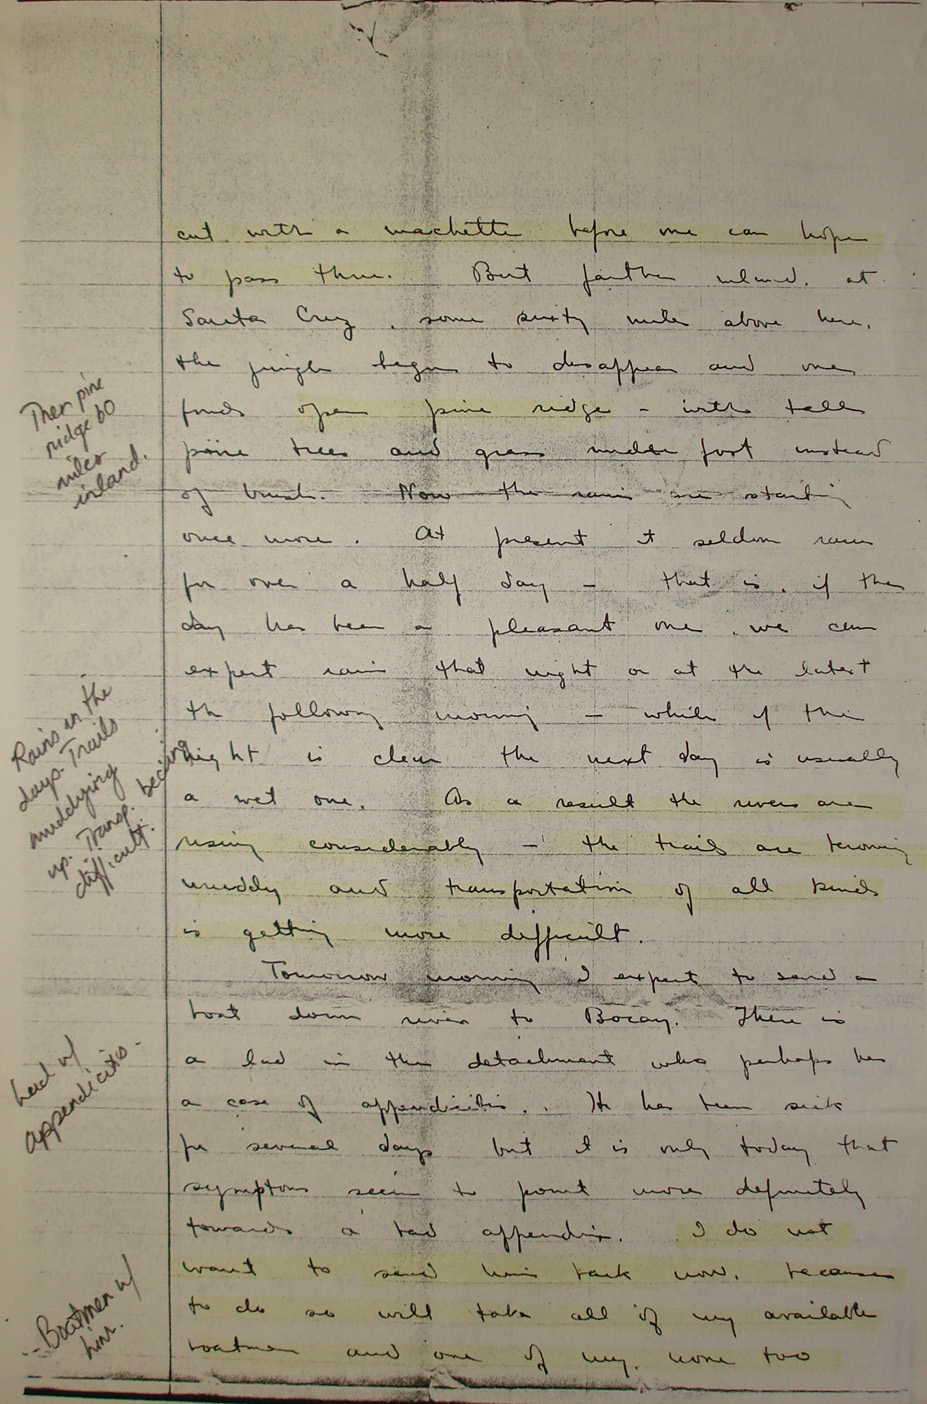 cut with a machette before one can hope
to pass thru. But farther inland, at
Santa Cruz, some sixty miles above here,
the jungle begins to disappear and one
finds open pine ridge - with tall
pine trees and grass under foot instead
of brush. Now the rains are starting
once more. At present it seldom rains
for over a half day - that is, if the
day has been a pleasant one, we can
expect rain that night or at the latest
the following morning - while if the
night is clear the next day is usually
a wet one. As a result the rivers are
rising considerably - the trails are turning
muddy and transportation of all kinds
is getting more difficult.
Tomorrow morning I expect to send a
boat down river to Bocay. There is
a lad in the detachment who perhaps has
a case of appendicitis. He has been sick
for several days but it is only today that
symptoms seem to point more definitely
towards a bad appendix. I do not
want to send him back now, because
to do so will take all of my available
boatmen and one of my none too
Then pine
ridge 60
miles
inland.
Rains in the
days. Trails
muddying
up. Transp. becoming
difficult.
Lad w/
appendicitis -
Boatmen w/
him.